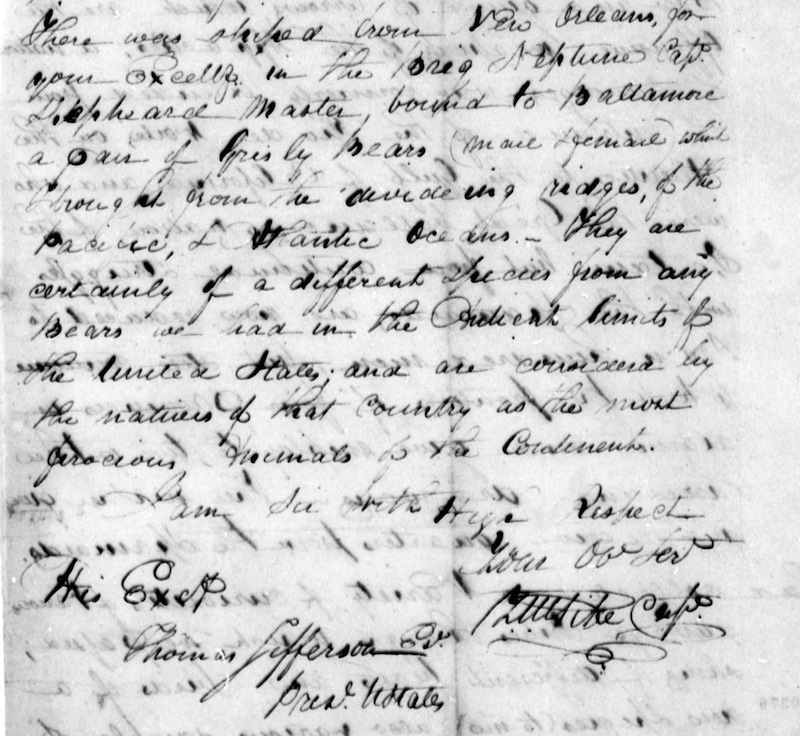 There was shiped from New Orleans, for
your Excellz. in the Brig Neptune Capt.
Shepheard Master, bound to Baltamore
a pair of Grisly Bears (male & female) which I
brought from the divideing ridges, of the
Pacific, & Atlantic Oceans.– They are
certainly of a different Species from any
Bears we had in the Antient limits of
the United States; and are considerd by
the natives of that Country as the most
ferocious Animals of the Continent.
I am Sir With High Respect
Your Ob. Servt.
His Excy.
Z M Pike Capt.
Thomas Jefferson Esr.
Presdt. UStates